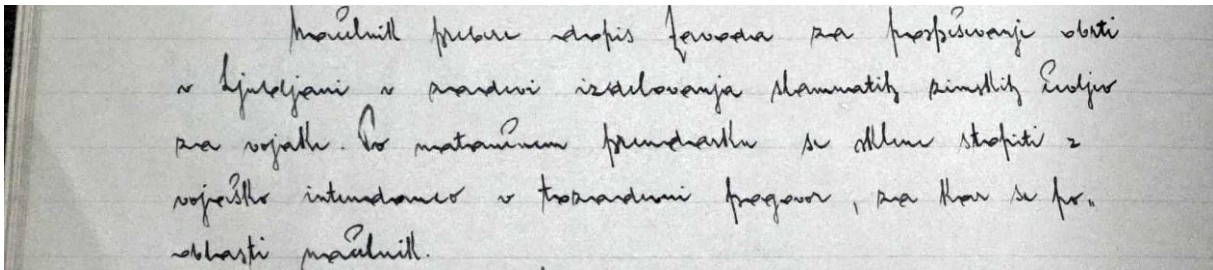 Načelnik prebere dopis Zavoda za pospeševanje obrti
v Ljubljani v zadevi izdelovanja slamnatih zimskih čevljev
za vojake. Po natančnem preudarku se sklene stopiti z
vojaško intendanco v tozadevni pogovor, za kar se po„
oblasti načelnik.